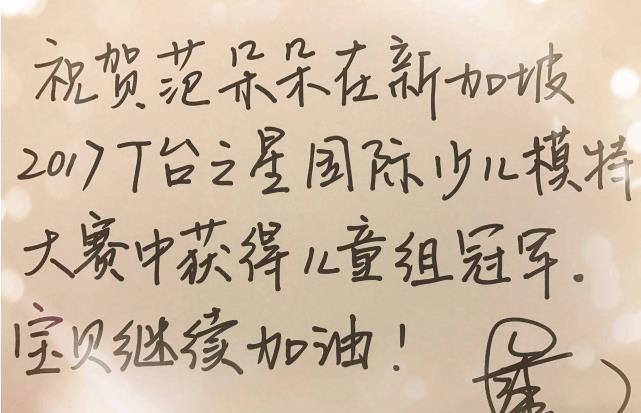 祝贺范朵朵在新加坡
2017T台之星国际少儿模特
大赛中获得儿童组冠军.
宝贝继续加油!